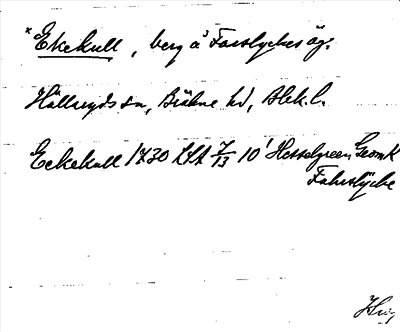 *Ekekull, berg å Farslyckes äg.
Hällaryds sn, Bräkne hd, Blek.l.
Eckekull 1730 LSA 7/13 10' Hesselgreen Geomk
Fahrslÿcke